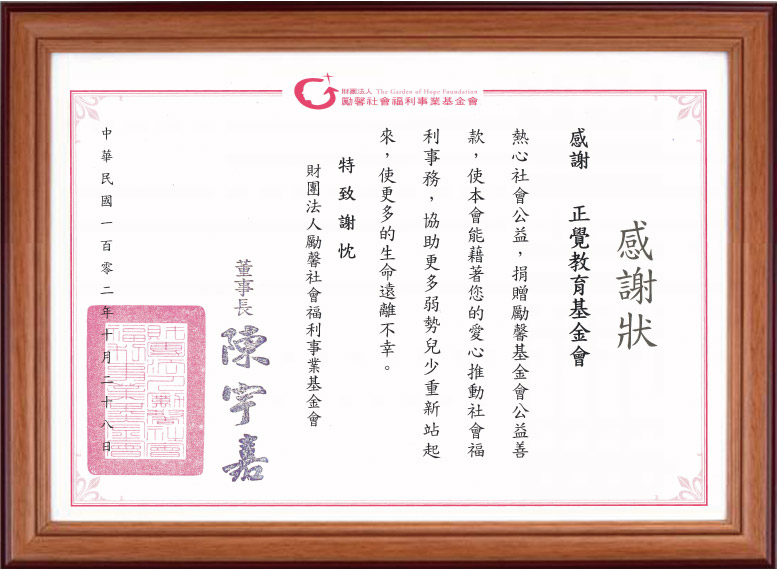 財團法人 The Garden of Hope Foundation
勵馨社會福利事業基金會
感謝狀
感謝 正覺教育基金會
熱心社會公益，捐贈勵馨基金會公益善
款，使本會能藉著您的愛心推動社會福
利事務，協助更多弱勢兒少重新站起
來，使更多的生命遠離不幸。
特致謝忱
財團法人勵馨社會福利事業基金會
董事長 陳宇嘉
中華民國一百零二年十月二十八日
財團法人勵馨社會福利事業基金會